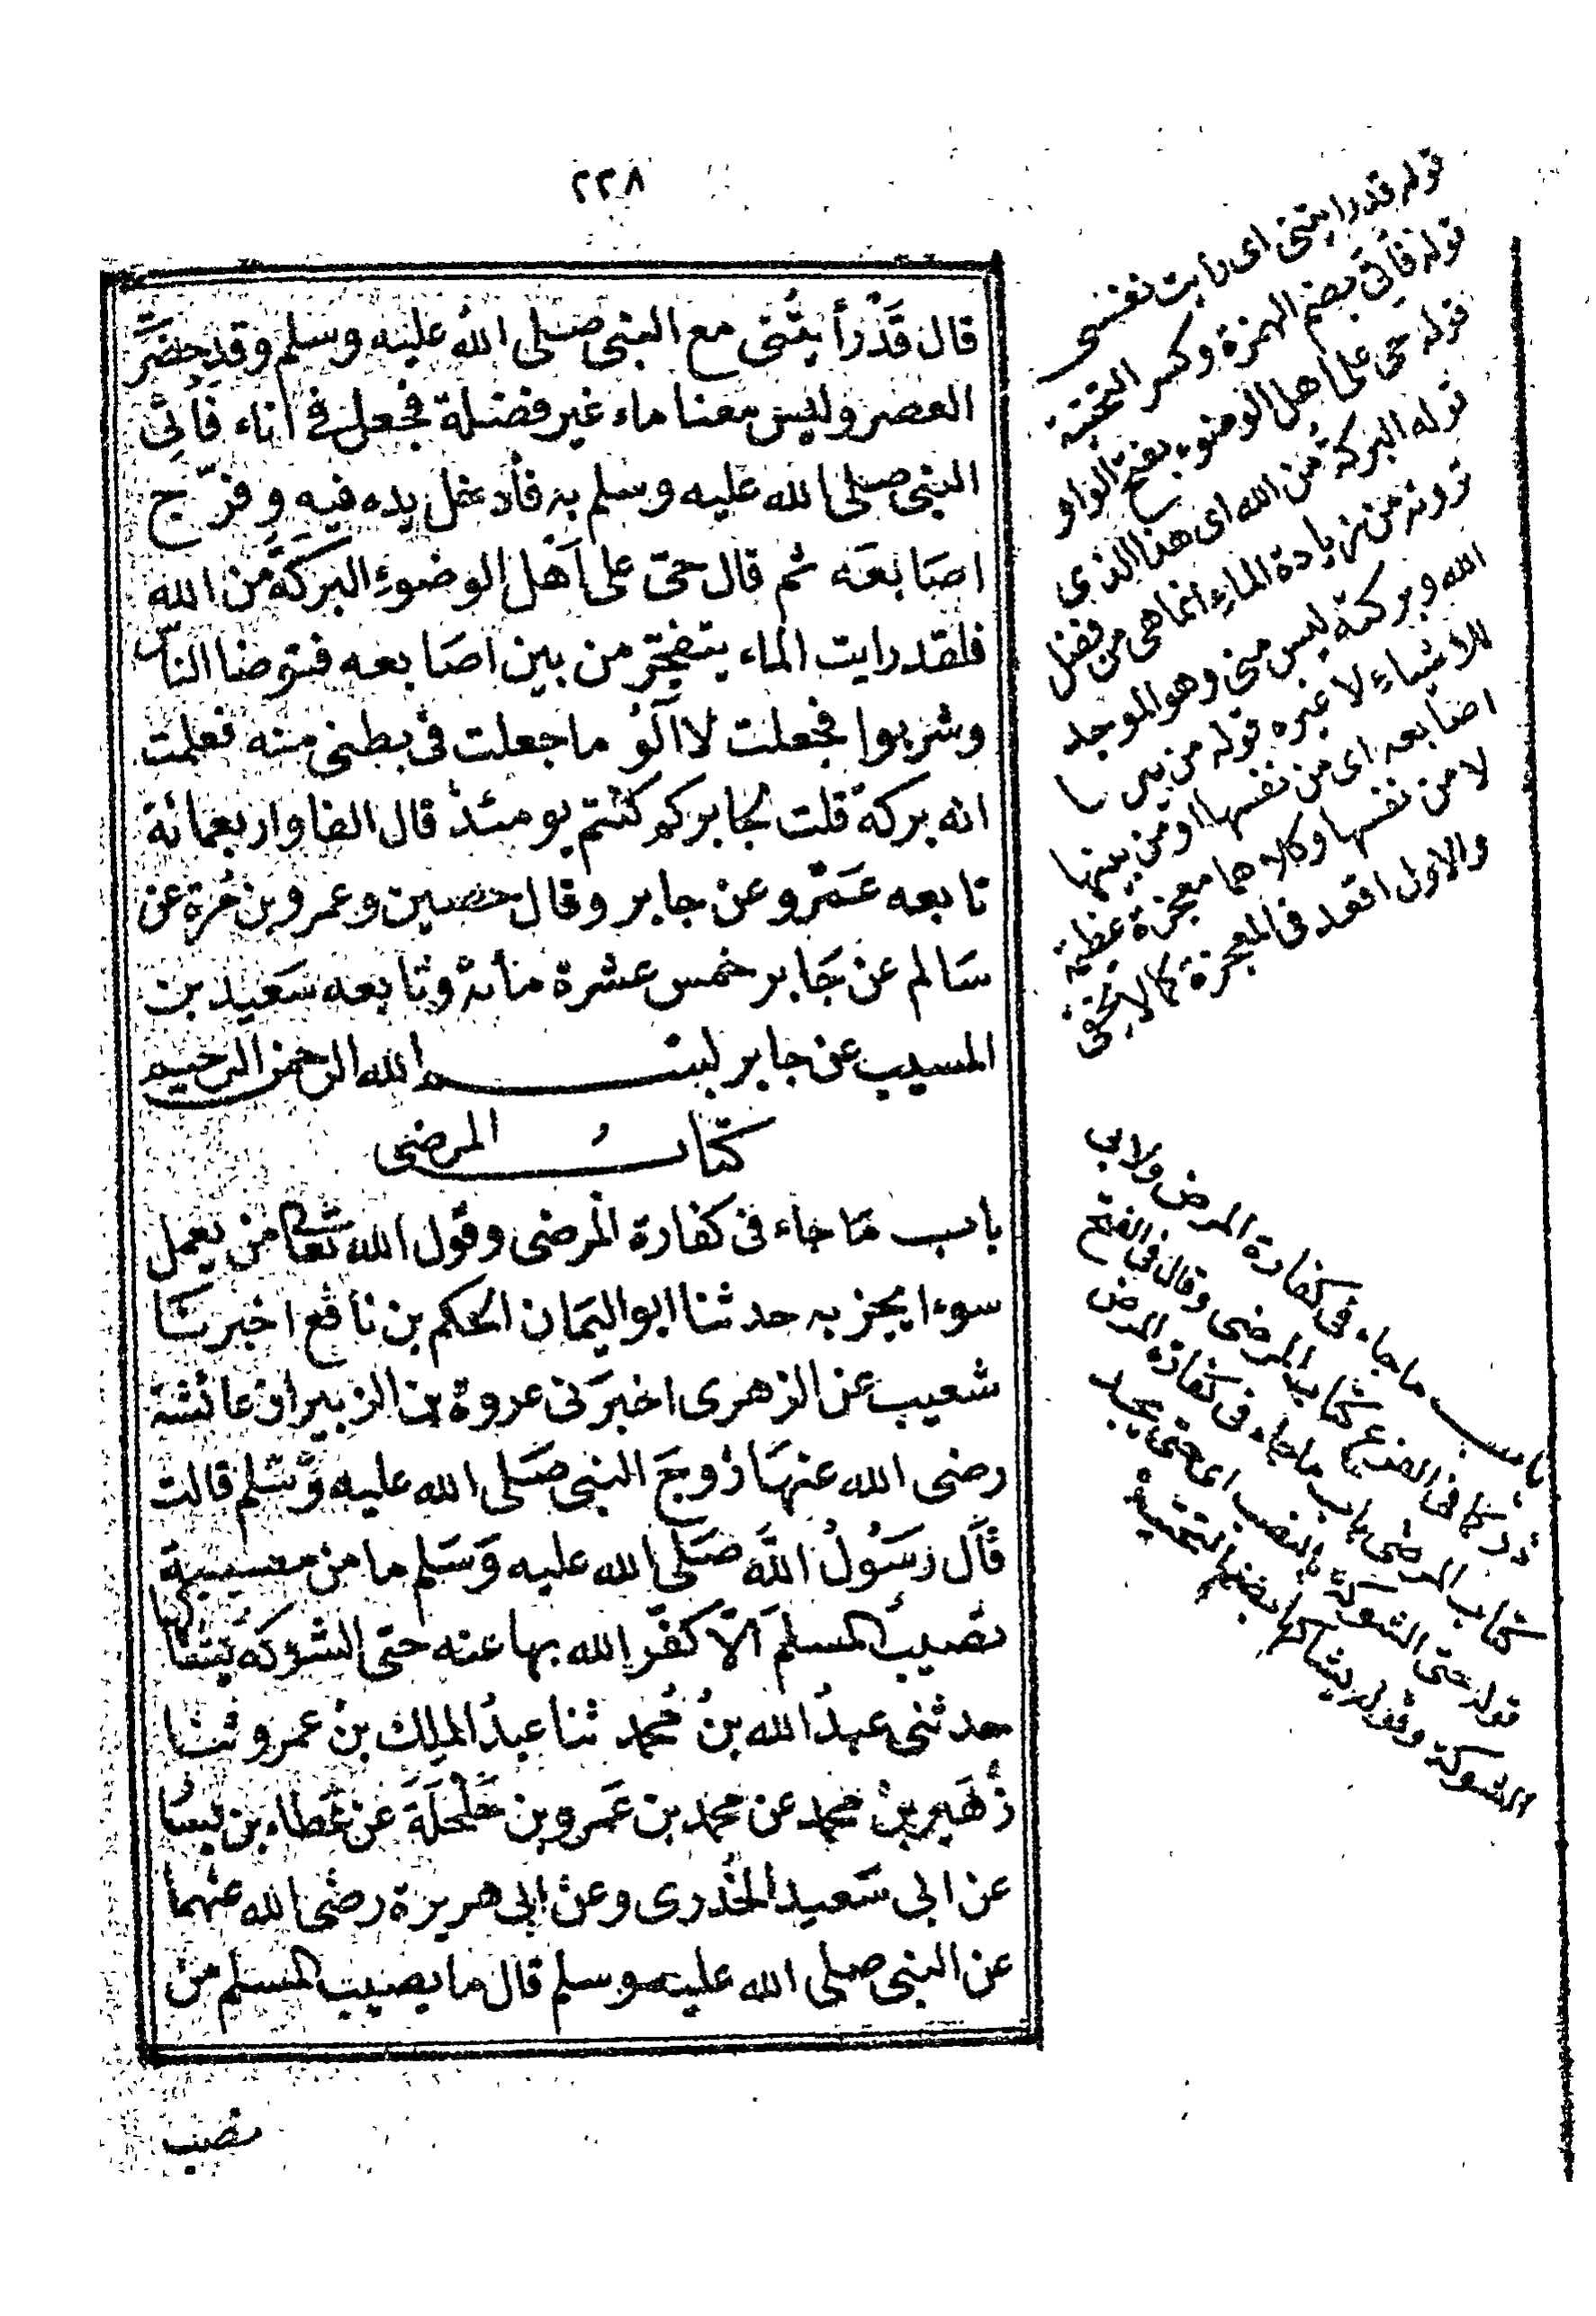 ٢٢٨
قال قَدْ رأيتُنى مع النبى صلى الله عليه وسلم وقد حضَرَت
العصر وليس معنا ماء غير فضلة فجعل فى اناء فاُتِى
النبى صلى الله عليه وسلم به فأدخل يده فيه وفرّج
اصَابعَه ثم قال حىّ على اَهْل الوضوءِ البركةُ من الله
فلقد رايت الماء يتفجّر من بين اصَابعه فتوضا الناس
وشربوا فجعلت لا آلُو ما جعلت فى بطنى منه فعلمت
انه بركة قلت لجابر كم كنتم يومئذ قال الفا واربعمائة
تابعه عَمْرو عن جابر وقال حصين وعمرو بن مُرة عن
سَالم عن جَابر خمس عشرة مائة وتابعه سَعيد بن
المسيب عن جابر بسم الله الرحمن الرحيم
كتابُ المرضى
باب مَا جاء فى كفارة المرضى وقول الله تعالى من يعمل
سوءا يجز به حدثنا ابو اليَمان الحكم بن نافع اخبرنَا
شعيب عن الزهرى اخبرَنى عروة بن الزبير ان عائشة
رضى الله عنهَا زوجَ النبى صَلى الله عليه وَسَلم قالت
قَال رَسُولُ اللَّه صَلى الله عليه وَسَلم ما من مصيبة
تصيبُ المسلمَ اِلَّا كفّر الله بها عنه حتى الشوكةَ يشاكها
حدثنى عبدُ الله بنُ مُحمد ثنا عبدُ الملِك بنُ عمرو ثنا
زُهَير بنُ محمد عن محمد بن عَمرو بن حَلْحَلَةَ عَن عَطاء بن يسَار
عن ابى سَعيد الخُدرى وعن ابى هريرة رضى الله عنهما
عن النبى صلى الله عليه وسلم قال ما يصيب المسلم من
نصب
قوله قد رايتنى اى رايت نفسى
قوله فأُتى بضم الهمزة وكسر التحتية
قوله حى على اهل الوضوء بفتح الواو
قوله البركة من الله اى هذا الذى
ترونه من زيادة الماء انما هى من فضل
الله وبركته ليس منى وهو الموجد
للاشياء لا غيره قوله من بين
اصابعه اى من نفسها او من بينها
لا من نفسها وكلاهما معجزة عظيمة
والاول اقعد فى المعجزة كما لا يخفى
باب ما جاء فى كفارة المرض ولابى
ذر كما فى الفرع كتاب المرضى وقال فى الفتح
كتاب المرضى باب ما جاء فى كفارة المرض
قوله حتى الشوكة بالنصب اى حتى يجد
الشوكة وقوله يشاكها بضم التحتية